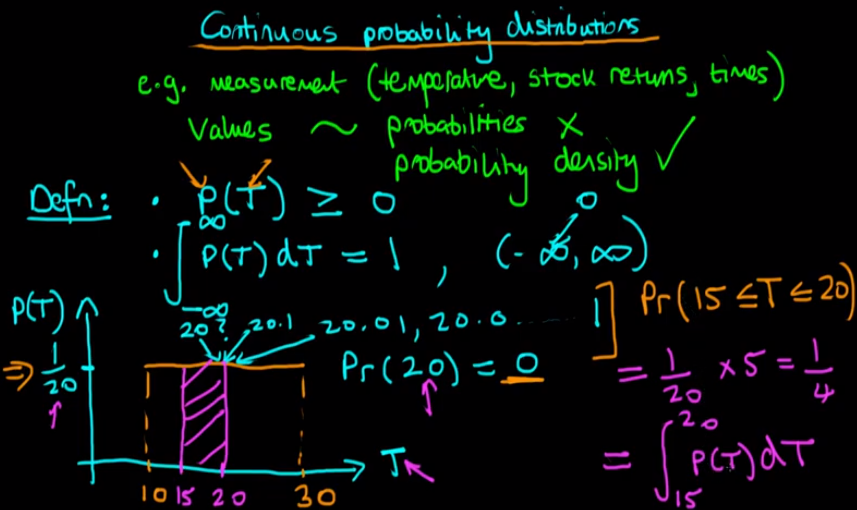 Continuous probability distributions
e.g. measurement (temperature, stock returns, times)
Values ~ probabilities ×
probability density ✓
Defn: • P(T) ≥ 0
• ∫_{-∞}^{∞} P(T) dT = 1 , (-∞, ∞)
0
P(T)
20? 20.1 20.01, 20.0......1
Pr(20) = 0
⇒ 1/20
T
10 15 20 30
] Pr(15 ≤ T ≤ 20)
= 1/20 × 5 = 1/4
= ∫_{15}^{20} P(T) dT